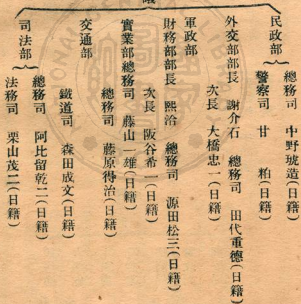 民政部 總務司 中野琥逸(日籍)
警察司 甘 粕(日籍)
外交部部長 謝介石 總務司 田代重德(日籍)
次長 大橋忠一(日籍)
軍政部
財務部部長 熙洽 總務司 源田松三(日籍)
次長 阪谷希一(日籍)
實業部總務司 藤山一雄(日籍)
總務司 藤原得治(日籍)
交通部
鐵道司 森田成文(日籍)
司法部 總務司 阿比留乾二(日籍)
法務司 栗山茂二(日籍)